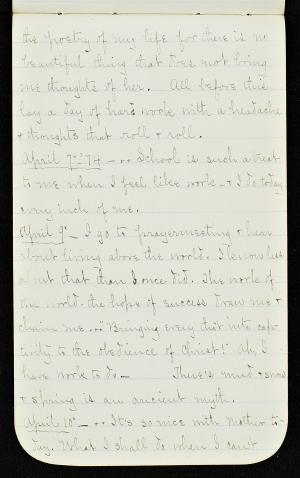 the poetry of my life for there is no
beautiful thing that does not bring
me thoughts of her. All before this
lay a day of hard work with a headache
+ thoughts that roll + roll.
April 7-'74 - .. School is such a treat
to me when I feel like work - + I do today
every inch of me.
April 9" - I go to prayermeeting + hear
about living above the world. I know less
about that than I once did. The work of
the world the hope of success draw me +
chain me. .. "Bringing every tho't into cap-
tivity to the obedience of Christ!" Ah, I
have work to do - There's mud + snow
+ spring is an ancient myth.
April 10" - .. It's so nice with Mother to-
day. What I shall do when I can't